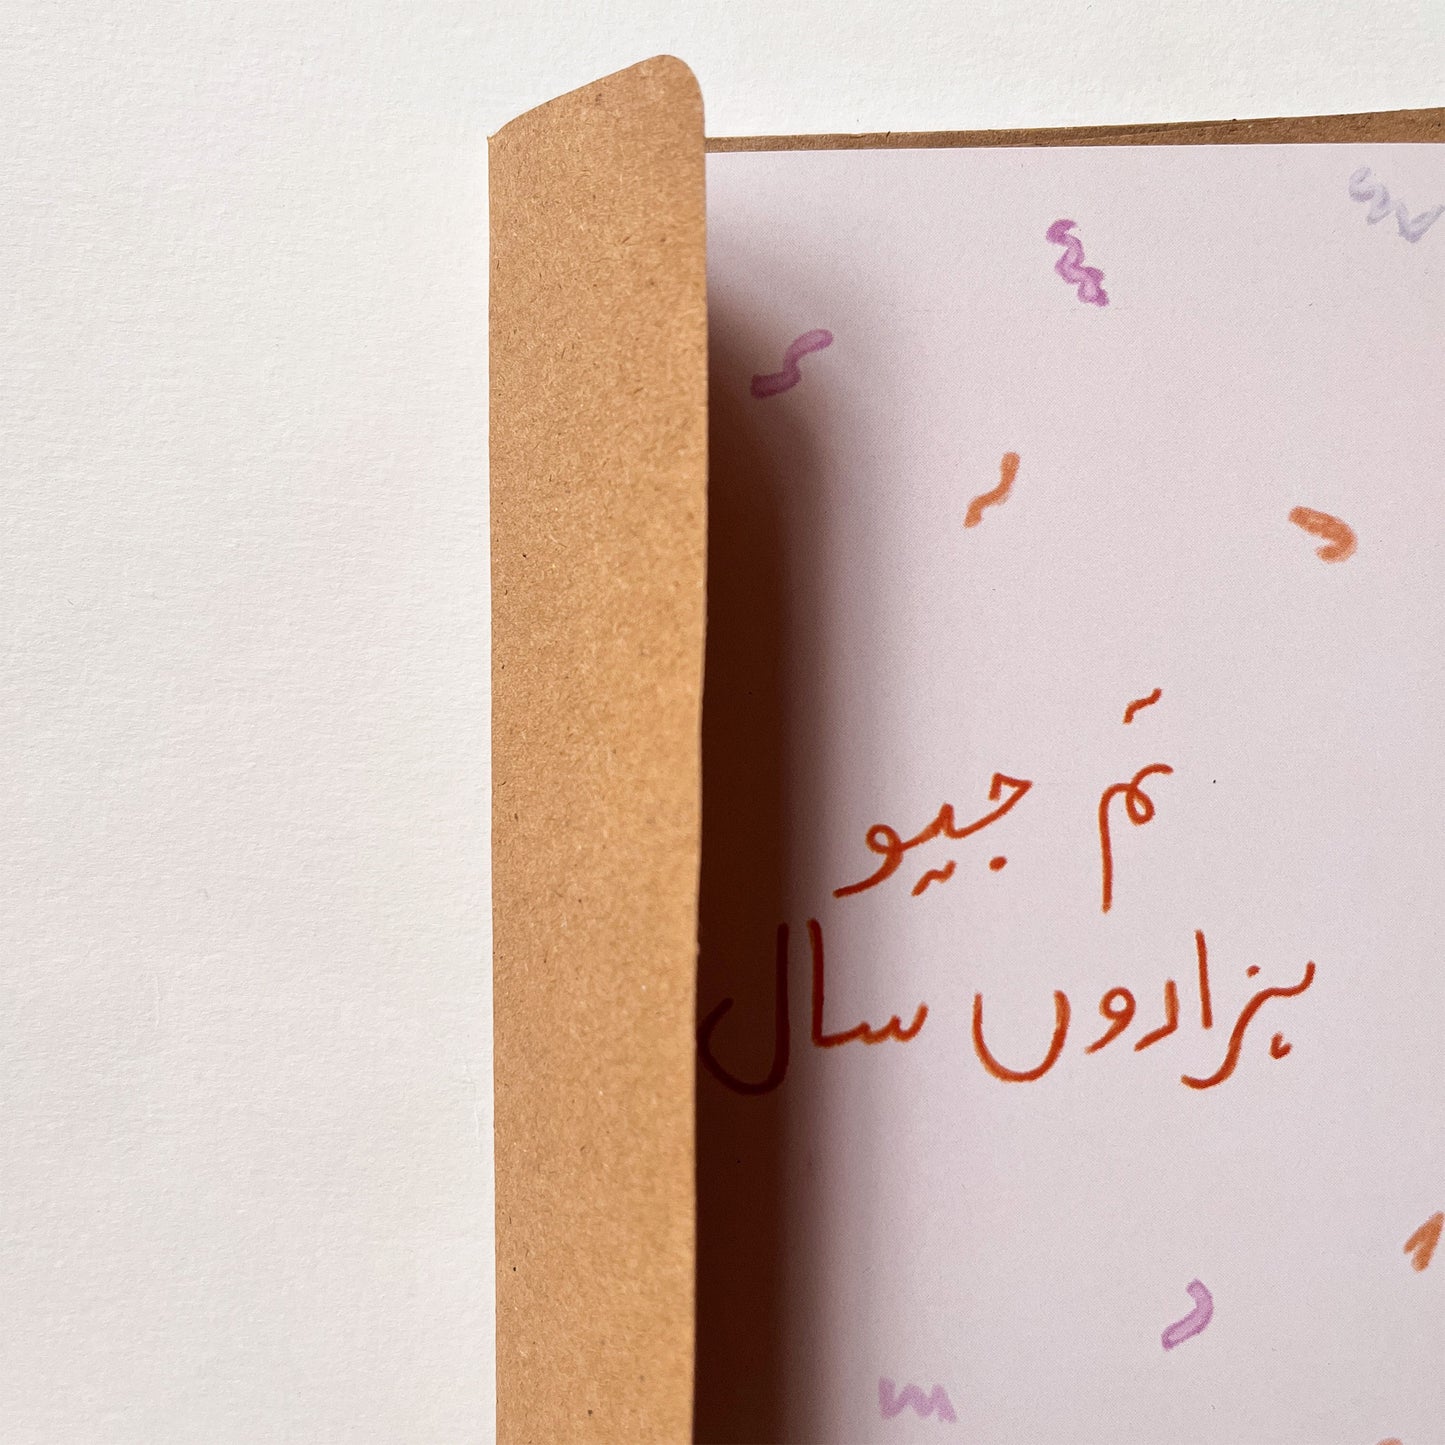 تم جیو
ہزاروں سال